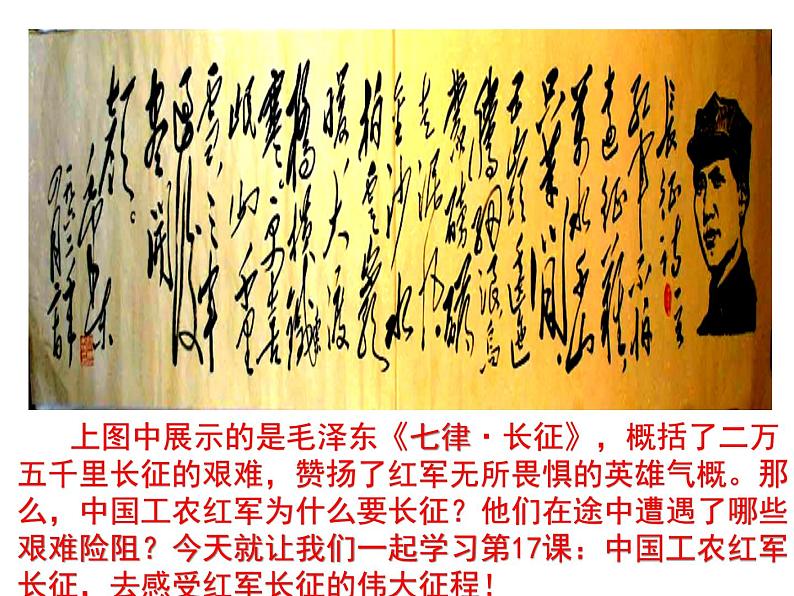 长征诗一首
红军不怕
远征难
万水千山
只等闲
五岭逶迤
腾细浪乌
蒙磅礴
走泥丸
金沙水
拍云崖
暖大渡
桥横铁索
寒。更喜
岷山千里
雪三军
过后
尽开
颜。
毛泽东
一九六二年
上图中展示的是毛泽东《七律·长征》，概括了二万
五千里长征的艰难，赞扬了红军无所畏惧的英雄气概。那
么，中国工农红军为什么要长征？他们在途中遭遇了哪些
艰难险阻？今天就让我们一起学习第17课：中国工农红军
长征，去感受红军长征的伟大征程！